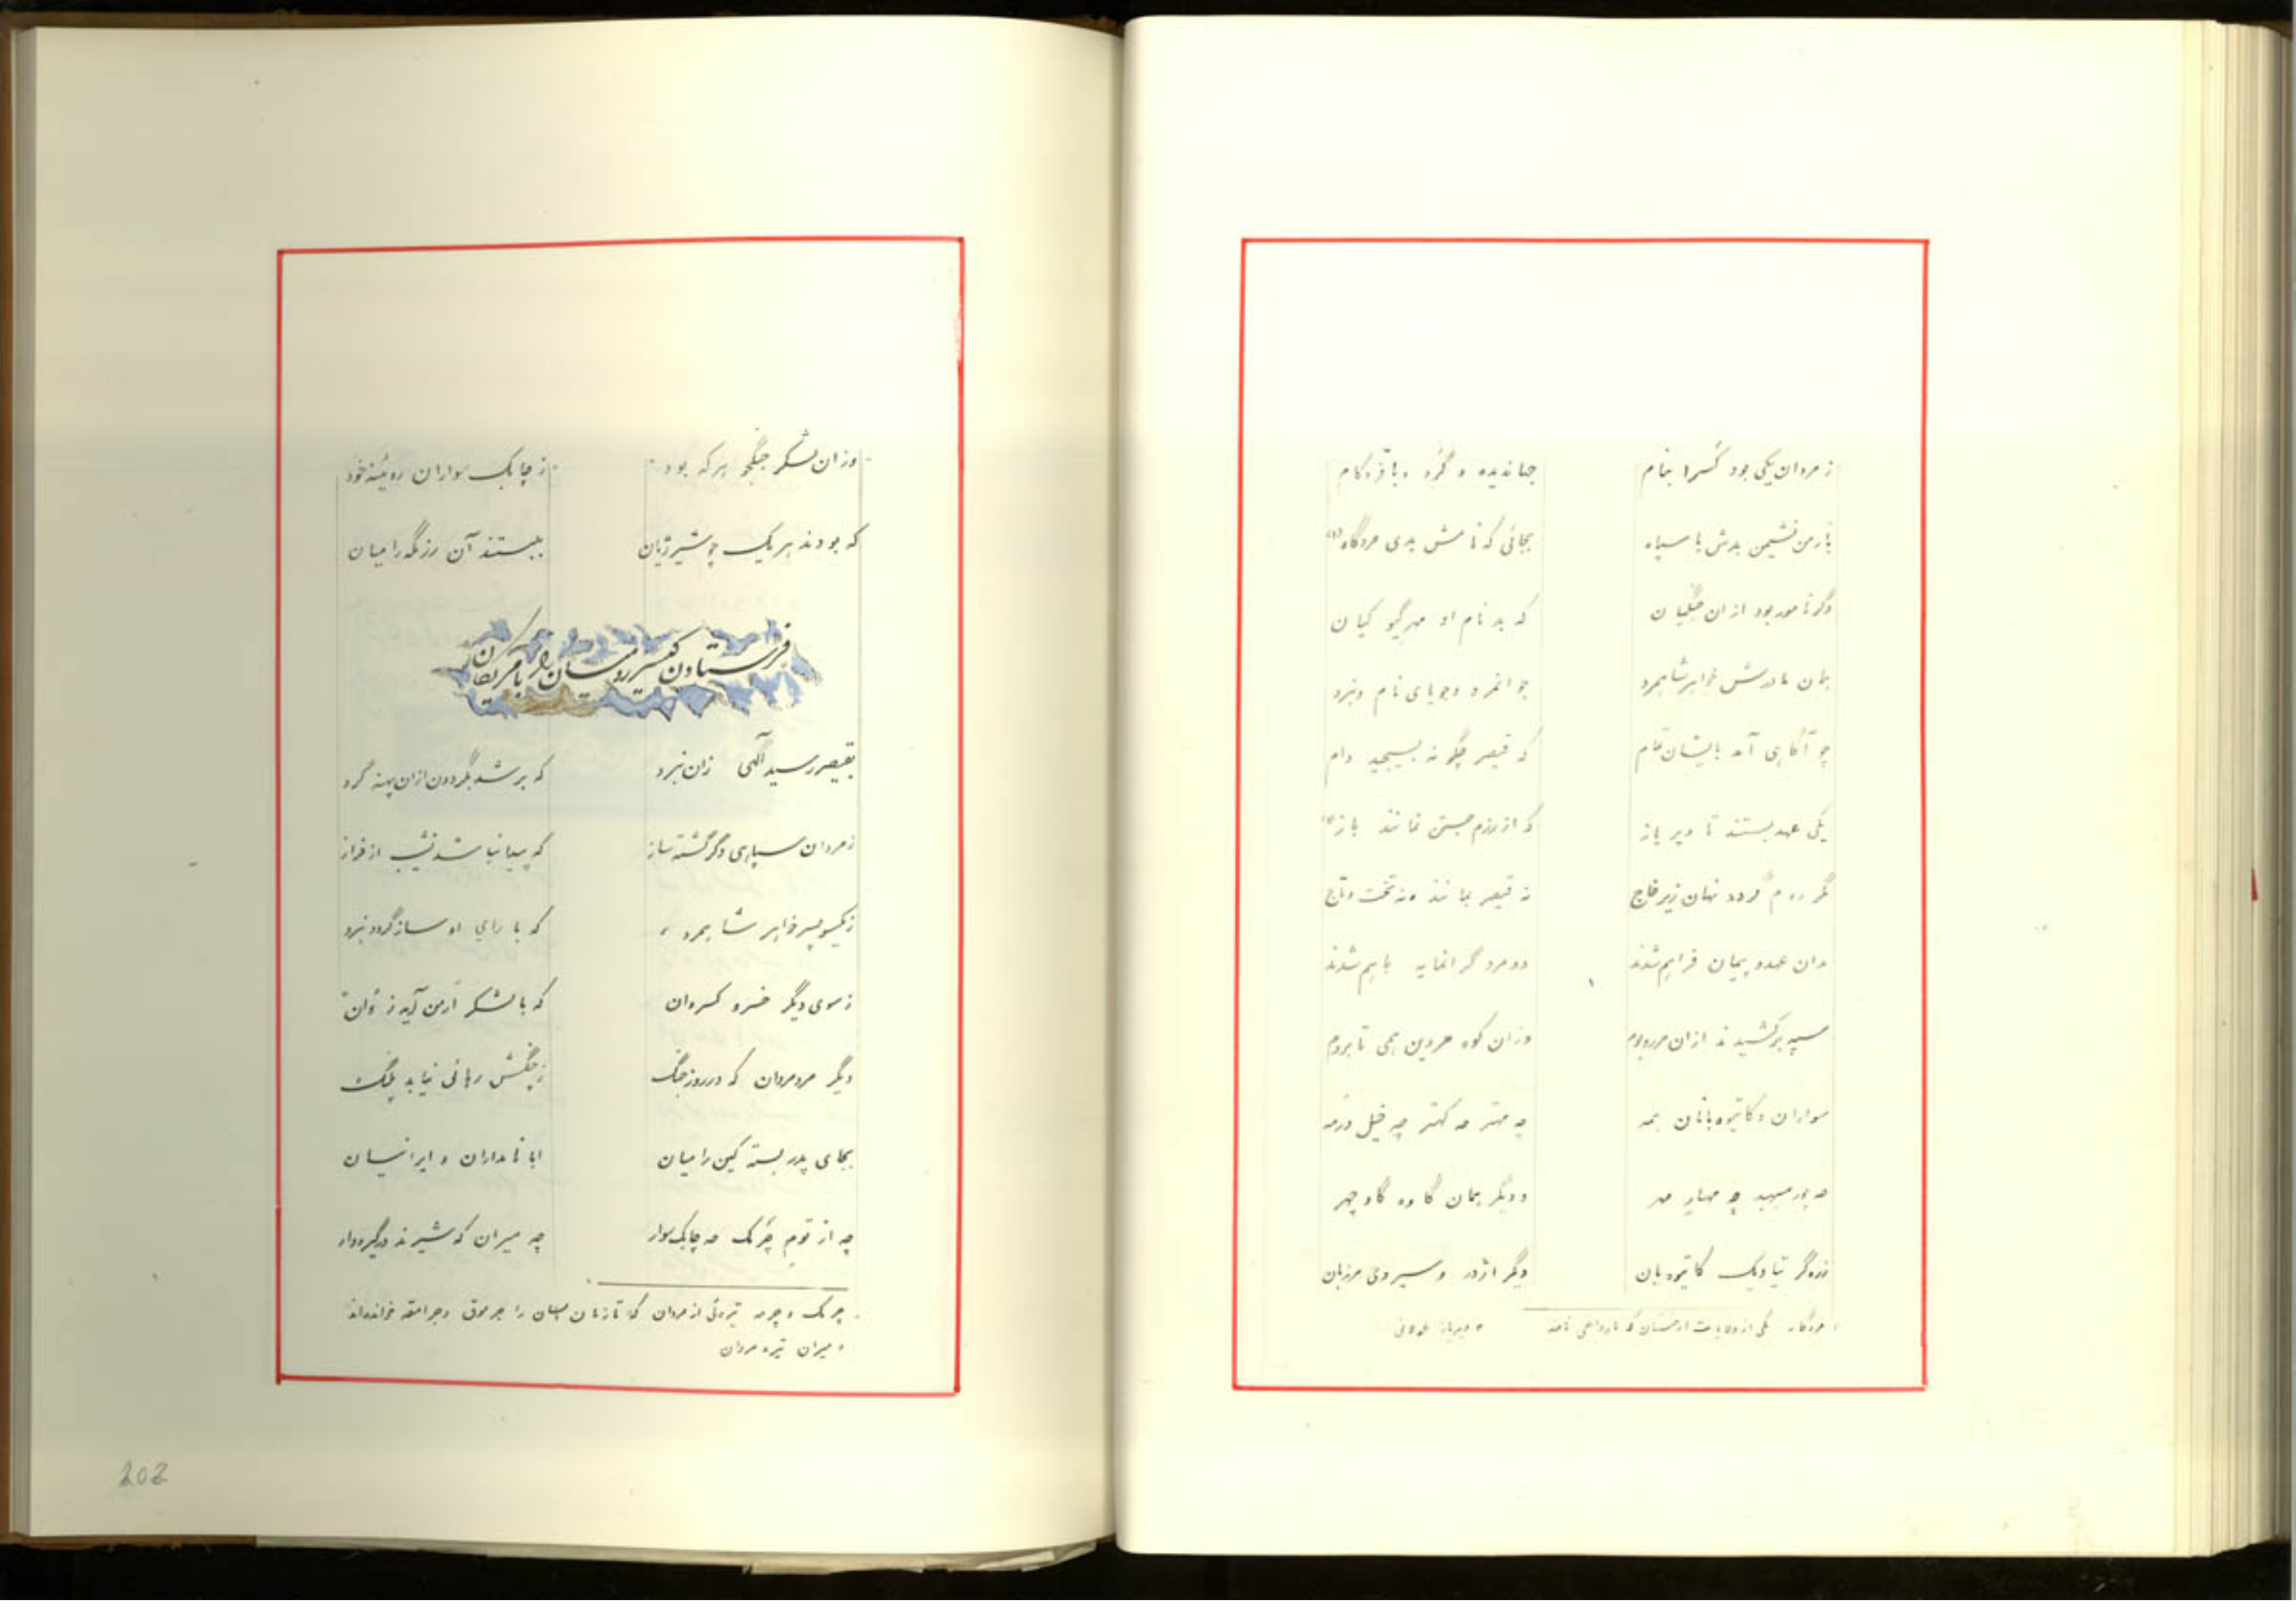 ز مردان یکی بود کسرا بنام جهاندیده و گرد و با فر و کام
بارمن نشیمن بدش با سپاه بجائی که نامش بدی مردگاه (۱)
دگر نامور بود ازان جنگیان که بد نام او مهر گیو کیان
همان مادرش خواهر شاهمرد جوانمرد و جویای نام و نبرد
چو آگاهی آمد بایشان تمام که قیصر چگونه بسیجید دام
یکی عهد بستند تا دیر باز که از رزم جستن نمانند باز
مگر روم گردد نهان زیر خاج نه قیصر بماند نه تخت و تاج
بدان عهد و پیمان فراهم شدند دو مرد گرانمایه با هم شدند
سپه برکشیدند ازان مرز و بوم وزان کوه مردین همی تا بروم
سواران و کاتیوه بانان همه چه مهتر چه کهتر چه خیل و رمه
چه پور سپهبد چه مهیار مهر و دیگر همان کاوه گاو چهر
زره گر نیاویک کاتیوبان دگر اژدر و سیروی مرزبان
مردگاه یکی از ولایات ارمنستان که نامند دیرباز طولانی
وزان لشکر جنگجو هر که بود ز چابک سواران روئینه خود
که بودند هر یک چو شیر ژیان ببستند آن رزمگه را میان
فرستادن قیصر رومیان را با مریکان
بقیصر رسید آگهی زان نبرد که بر شد بگردون ازان پهنه گرد
ز مردان سپاهی دگر گشته ساز که پیدا نباشد نشیب از فراز
ز یکسو پسر خواهر شاهمرد که با رای او ساز گردد نبرد
ز سوی دیگر خسرو کسروان که با لشکر ارمن آید ز وان
دیگر مرد مردان که در روز جنگ ز چنگش رهائی نیابد پلنگ
بجای پدر بسته کین را میان ابا نامداران و ایرانیان
چه از قوم چرمک چه چابک سوار چه میران که شیرند در گیر و دار
چرمک و چرمه تیره‌ئی از مردان که تازیان ایشان را جرموق و جرامقه خوانده‌اند
میران تیره مردان
202